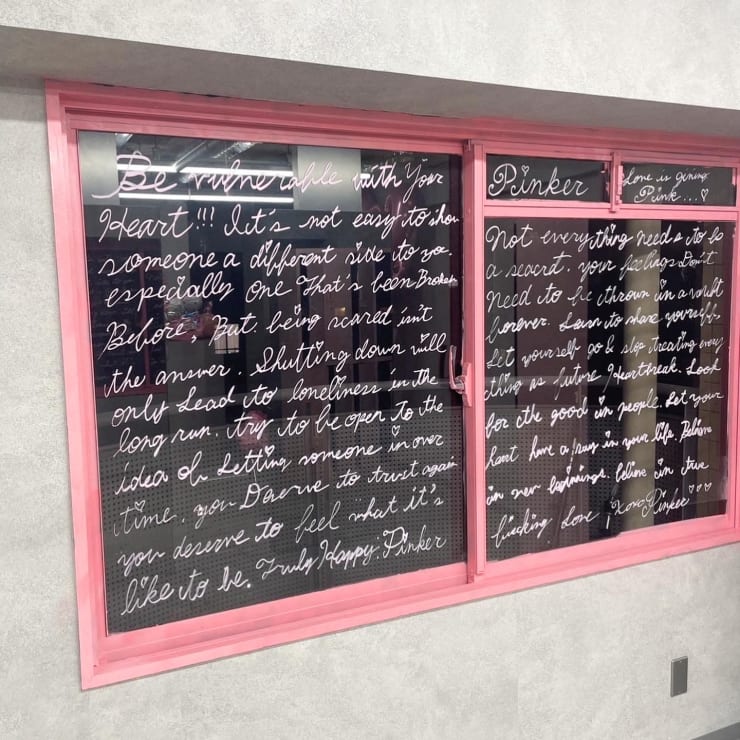 Be vulnerable with Your
Heart!!! It's not easy to show
someone a different side to you.
especially one That's been Broken
Before, But being scared isn't
the answer. Shutting down will
only Lead to loneliness in the
long run. try to be open To the
idea of Letting someone in over
time. you Deserve to trust again
you deserve to feel what it's
like to be. Truly Happy. Pinker
Pinker
Love is giving
Pink...♡
Not everything needs to be
a secret. your feelings Don't
Need to be thrown in a vault
forever. Learn to share yourself,
Let yourself go & stop treating every
thing as future Heartbreak. Look
for the good in people. Let your
heart have a say in your life. Believe
in new beginnings. believe in true
fucking Love. xoxo Pinker ♡♡♡